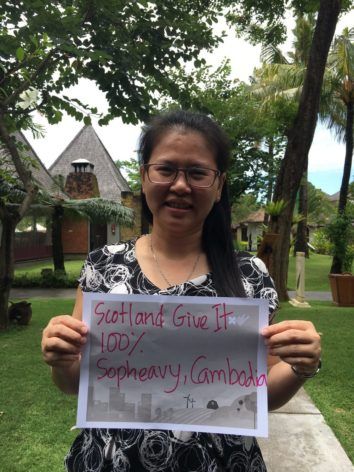 Scotland Give It
100%
Sopheavy, Cambodia